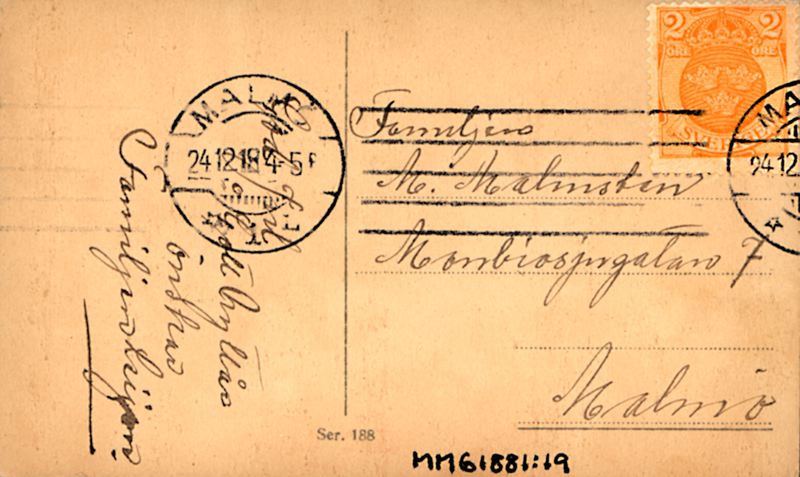 God Jul
och
Gott Nytt År
önskar
Familjen
MALMÖ
24 12 18 4-5 F
1
2 2
ÖRE ÖRE
SVERIGE
MA
24 12
Familjen
M. Malmsten
Monbiosjugatan 7
Malmö
Ser. 188
MM61881:19